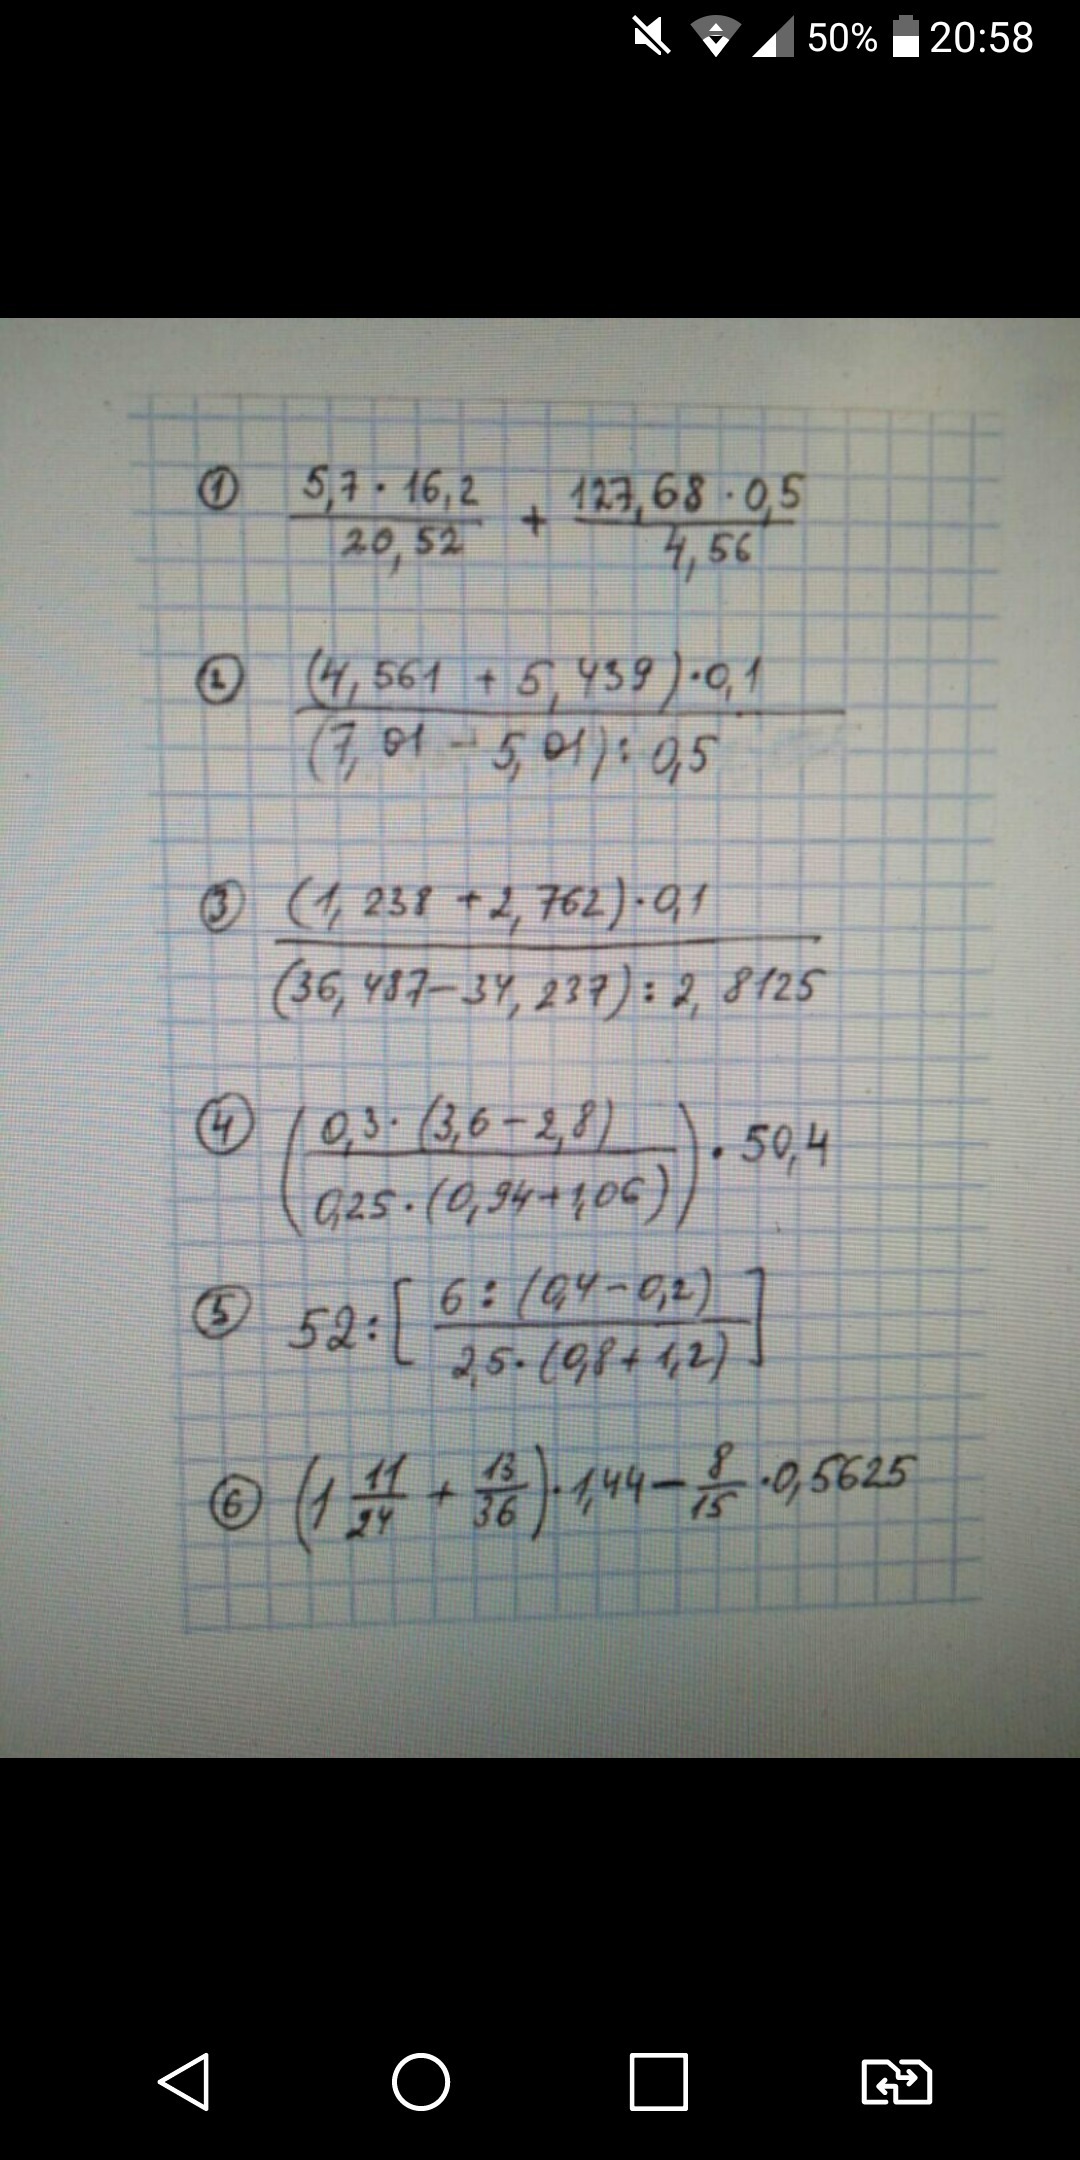 50% 20:58
① \frac{5,7 · 16,2}{20,52} + \frac{127,68 · 0,5}{4,56}
② \frac{(4,561 + 5,439) · 0,1}{(7,01 - 5,01) : 0,5}
③ \frac{(1,238 + 2,762) · 0,1}{(36,487 - 34,237) : 2,8125}
④ (\frac{0,3 · (3,6 - 2,8)}{0,25 · (0,94 + 1,06)}) · 50,4
⑤ 52 : [\frac{6 : (0,4 - 0,2)}{2,5 · (0,8 + 1,2)}]
⑥ (1 \frac{11}{24} + \frac{13}{36}) · 1,44 - \frac{8}{15} · 0,5625